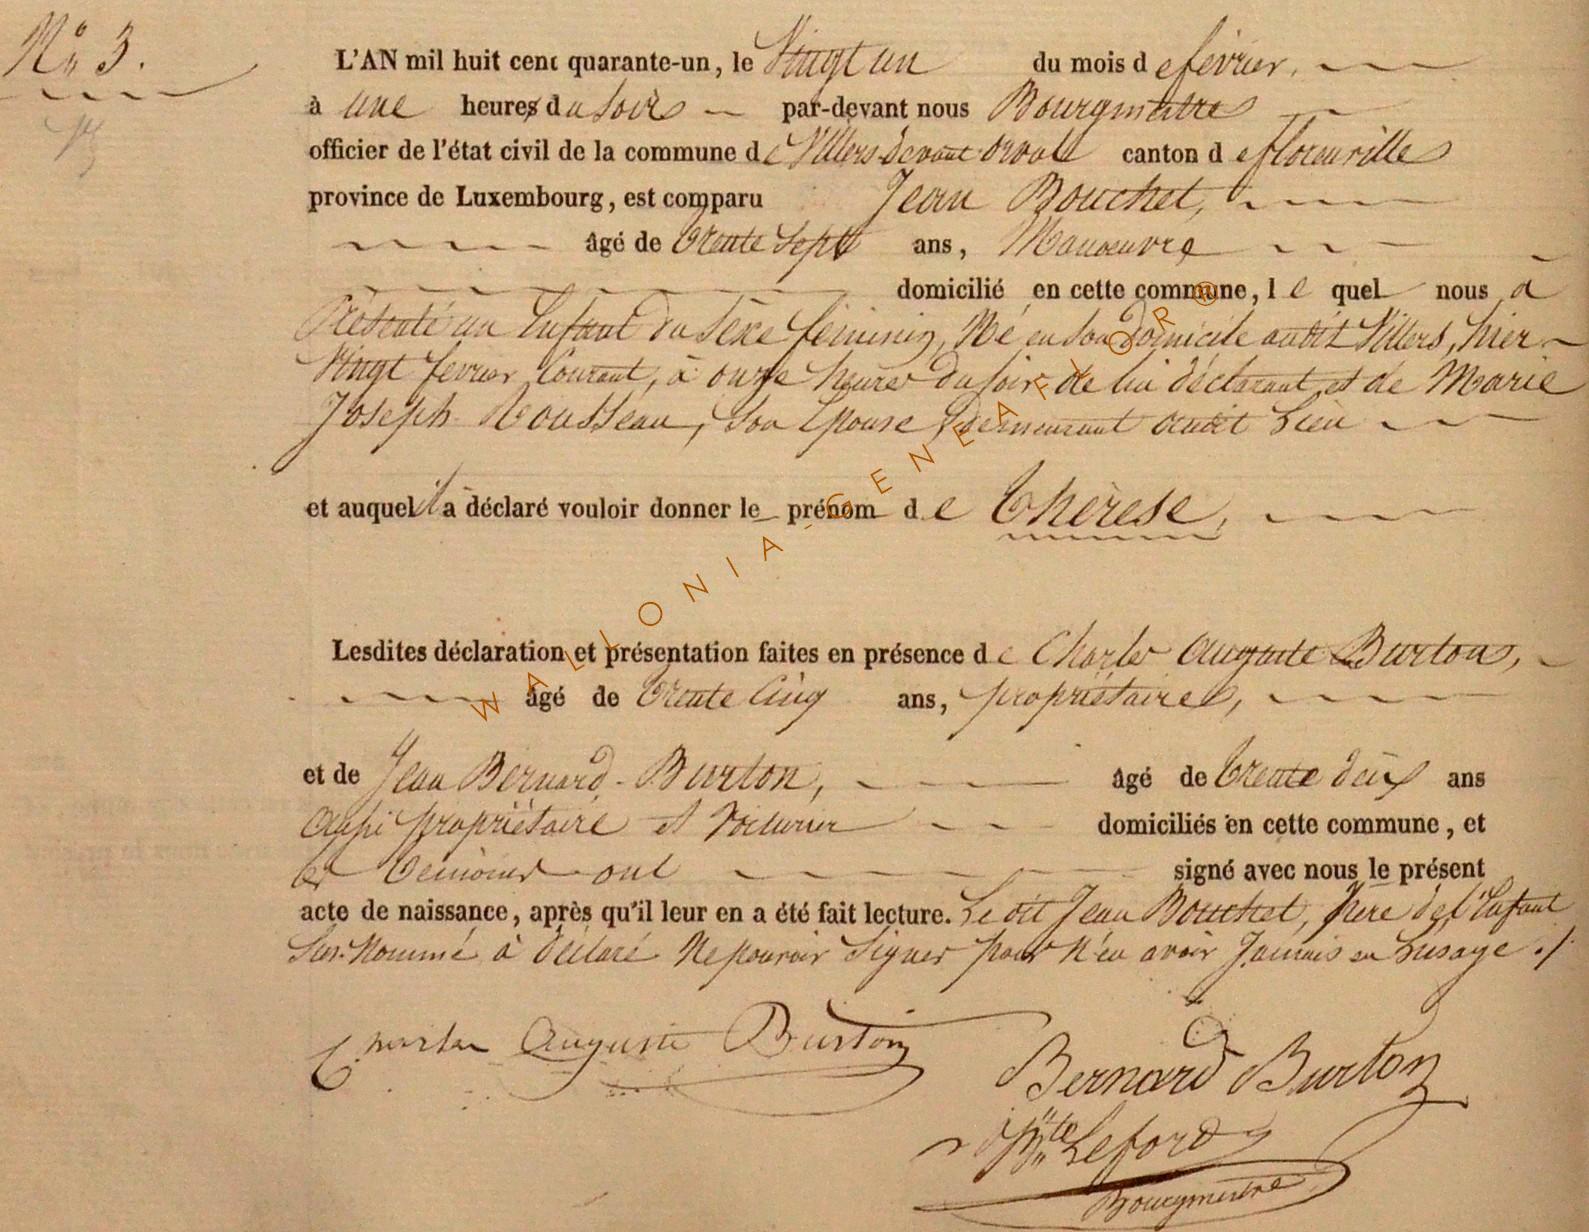 N° 3.
L'AN mil huit cent quarante-un, le Vingt un du mois de février.
à une heures du soir par-devant nous Bourgmestre
officier de l'état civil de la commune de Villers devant orval canton de florenville
province de Luxembourg, est comparu Jean Bouchet,
âgé de trente sept ans, Manoeuvre
domicilié en cette commune, le quel nous à
Présenté un Enfant du Sexe féminin, Né en son domicile audit Villers, hier
Vingt février Courant, à onze heures du soir de lui déclarant, et de Marie
Joseph Rousseau, Son Epouse, demeurant audit Lieu
et auquel il a déclaré vouloir donner le prénom de Thérèse,
Lesdites déclaration et présentation faites en présence de Charles Auguste Burton,
âgé de trente Cinq ans, propriétaire,
et de Jean Bernard Burton, âgé de trente deux ans
Aussi propriétaire et Voiturier domiciliés en cette commune, et
les témoins ont signé avec nous le présent
acte de naissance, après qu'il leur en a été fait lecture. Le dit Jean Bouchet, Père de l'Enfant
Sus-Nommé à déclaré Ne pouvoir Signer pour N'en avoir Jamais eu L'usage ./.
Charles Auguste Burton
Bernard Burton
Leford
Bourgmestre
WALLONIA-GENEAFLOR®